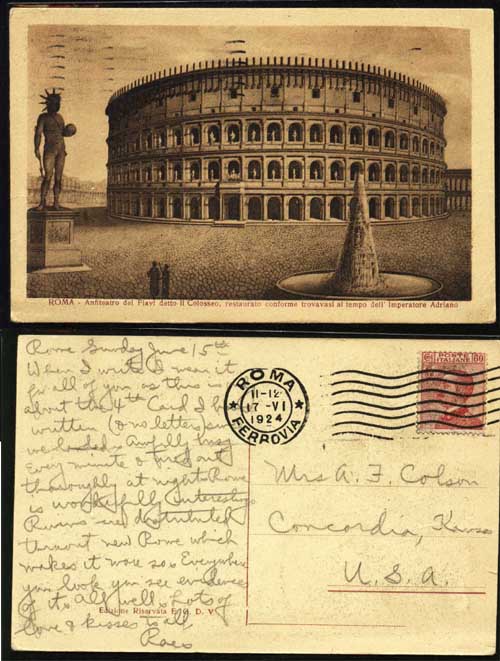 ROMA - Anfiteatro dei Flavi detto il Colosseo, restaurato conforme trovavasi al tempo dell' Imperatore Adriano
Rome Sunday June 15th
When I write I mean it
for all of you as this is
about the 4th Card I h
written (& no letter) sin
we landed. Awfully busy
Every minute & tired out
thoroughly at night. Rome
is wonderfully interesting.
Ruins are distributed
thruout new Rome which
makes it more so. Everywhere
you look you see evidence
of it. All well. Lots of
love & kisses to all
ROMA
11-12
17-VI
1924
FERROVIA
POSTE
ITALIANE 60
Mrs A. F. Colson
Concordia, Kansas
U.S.A.
Edizione Riservata E. G. D. V.